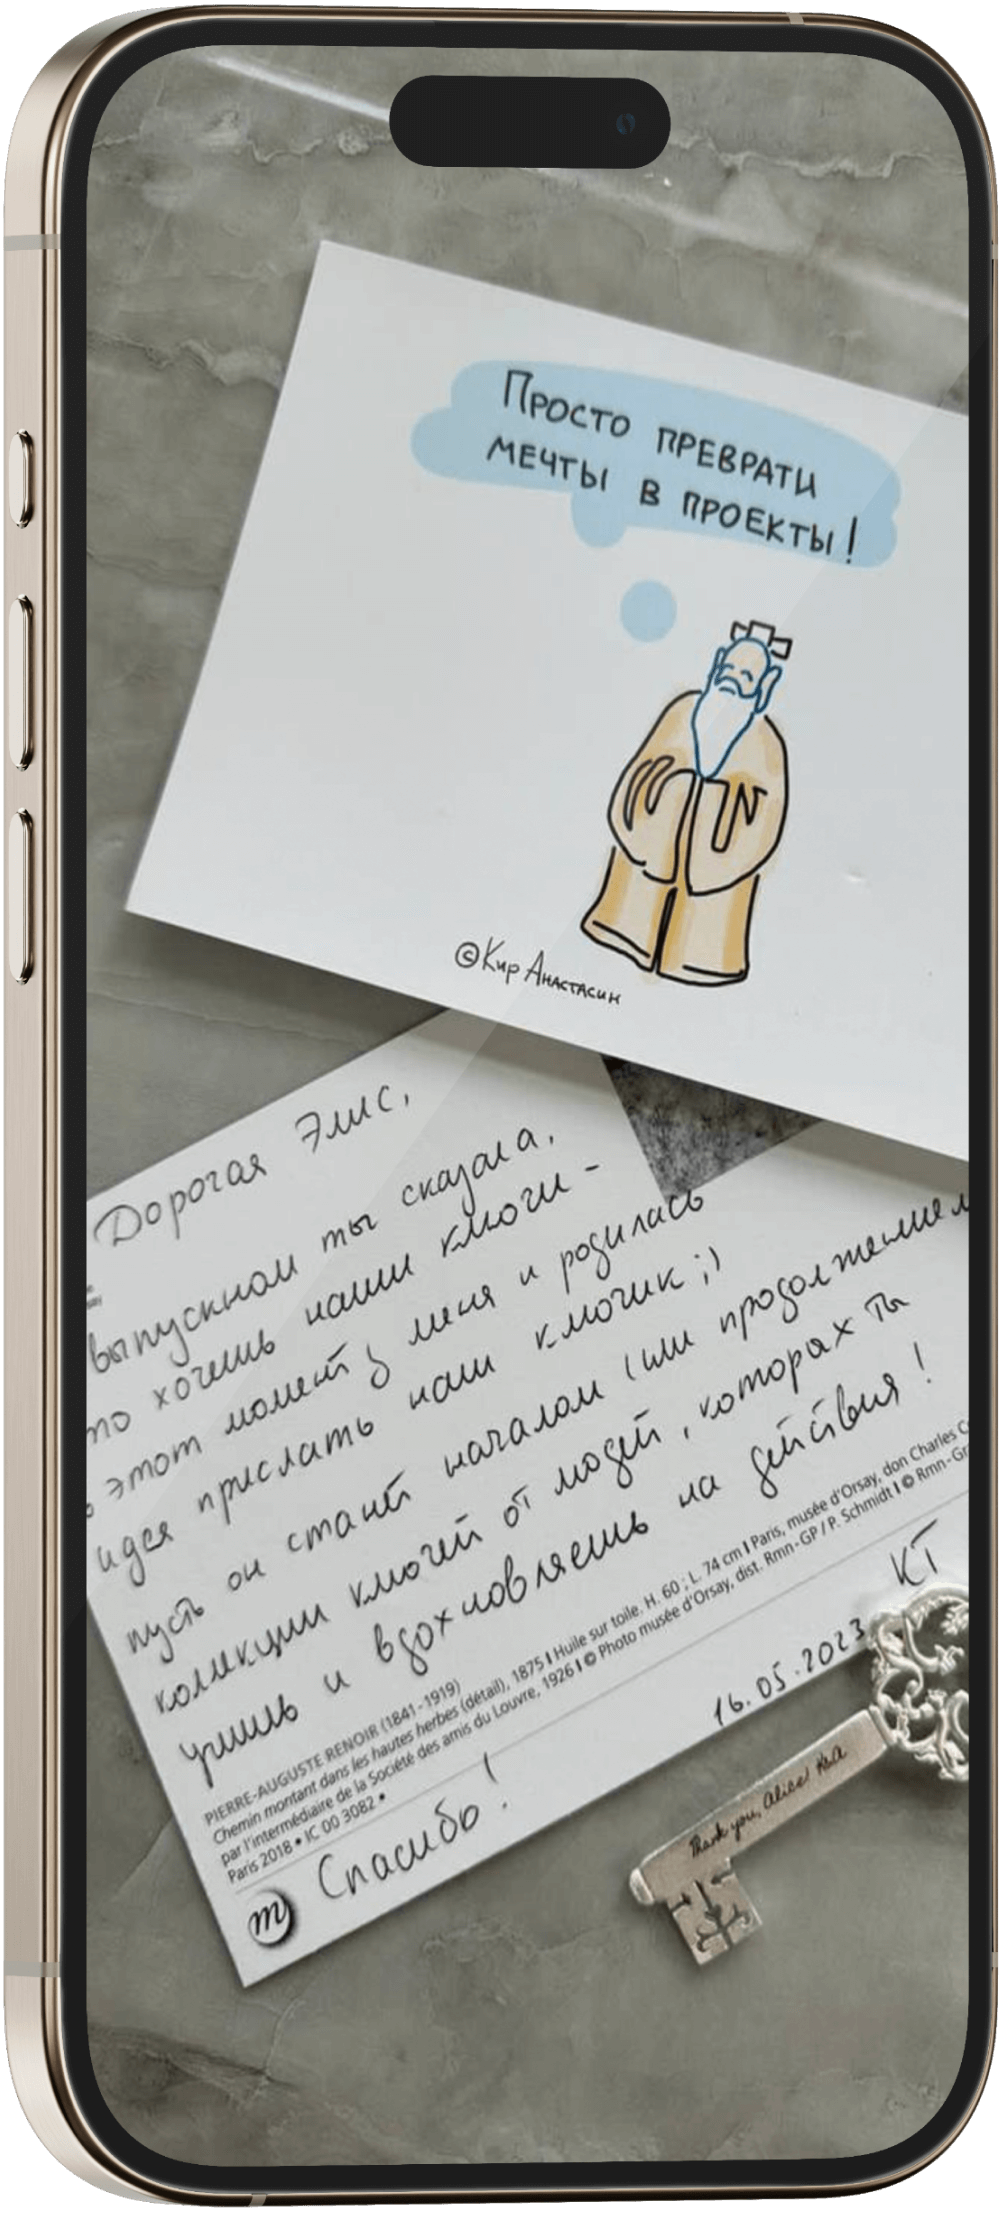 Просто преврати
мечты в проекты!
©Кир Анастасин
Дорогая Элис,
выпускном ты сказала,
то хочешь наши ключи -
этот момент у меня и родилась
идея прислать наш ключик ;)
пусть он станет началом (или продолжением
коллекции ключей от людей, которых ты
учишь и вдохновляешь на действия!
PIERRE-AUGUSTE RENOIR (1841-1919)
Chemin montant dans les hautes herbes (détail), 1875 I Huile sur toile. H. 60 ; L. 74 cm I Paris, musée d'Orsay, don Charles
par l'intermédiaire de la Société des amis du Louvre, 1926 I © Photo musée d'Orsay, dist. Rmn-GP / P. Schmidt I © Rmn-G
Paris 2018 • IC 00 3082 •
КТ
16.05.2023
m
Спасибо!
Thank you, Alice!